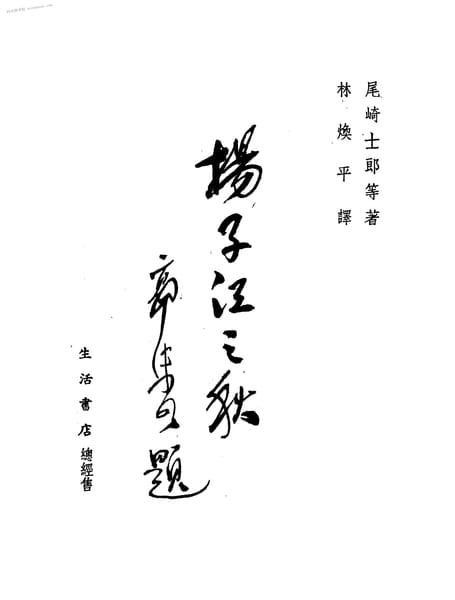 尾崎士郎等著
林煥平譯
揚子江之秋
郭沫若題
生活書店總經售